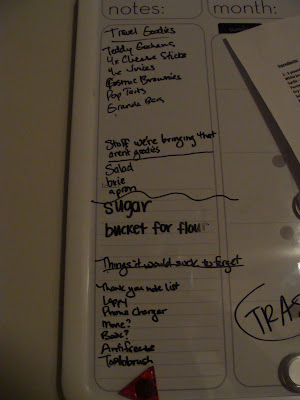 notes:
month:
Travel Goodies
Teddy Grahams
4x Cheese Sticks
4x Juices
Cosmic Brownies
Pop Tarts
Granola Bars
Stuff we're bringing that
arent goodies
Salad
brie
apron
sugar
bucket for flour
Things it would suck to forget
Thank you note list
Lappy
Phone Charger
Money?
Book?
Antifreeze
Toothbrush
TRAS